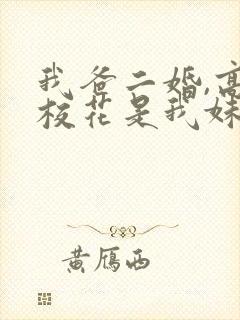 我爸二婚,高
校花是我妹
黄雁西